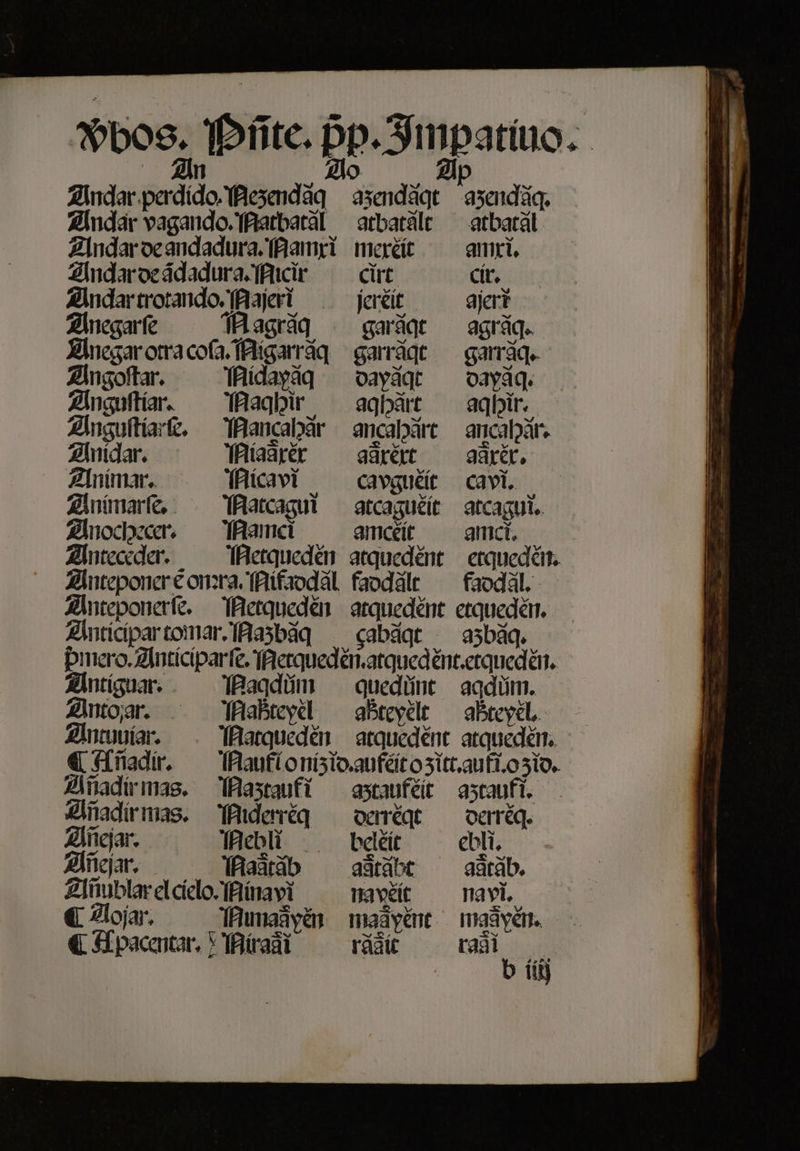 Ꝟbos. Pñte. p̃p. Impatiuo.
An Ao Ap
Andar perdido. Nezendăq azendăqt azendăq.
Andár vagando. Natbatăl atbatălt atbatăl
Andar de andadura. Namxĭ mexĕit amxĭ.
Andar de ádadura. Nicĭr cĭrt cĭr.
Andar trotando. Najerĭ jerĕit ajerĭ
Anegarse Nagrăq garăqt agrăq.
Anegar otra cosa. Nigarrăq garrăqt garrăq.
Angostar. Nidayăq dayăqt dayăq.
Angustiar. Naqhĭr aqhărt aqhĭr.
Angustiarse. Nancahăr ancahărt ancahăr.
Anidar. Niaăxĕx aăxĕxt aăxĕx.
Animar. Nicavĭ cavguĕit cavĭ.
Animarse. Natcaguĭ atcaguĕit atcaguĭ.
Anochecer. Namcĭ amcĕit amcĭ.
Anteceder. Netquedĕn atquedĕnt etquedĕn.
Anteponer é onrra. Nifaodăl faodălt faodăl.
Anteponerse. Netquedĕn atquedĕnt etquedĕn.
Anticipar tomar. Nazbăq çabăqt azbăq.
pmero. Anticiparse. Netquedĕn. atquedĕnt. etquedĕn.
Antiguar. Naqdŭm quedŭnt aqdŭm.
Antojar. Nahteyĕl ahteyĕlt ahteyĕl.
Antuuiar. Natquedĕn atquedĕnt atquedĕn.
¶ Añadir. Naufĭ o nizĭo. aufĕit o zitt. aufĭ. o zĭo.
Añadir mas. Naztaufĭ aztaufĕit aztaufĭ.
Añadir mas. Niderrĕq derrĕqt derrĕq.
Añejar. Neblĭ belĕit eblĭ.
Añejar. Naătăb aătăbt aătăb.
Añublar el cielo. Ninavĭ navĕit navĭ.
¶ Aojar. Nimaăyĕn maăyĕnt maăyĕn.
¶ Apacentar. Niraăĭ răăit raăĭ
b iiij